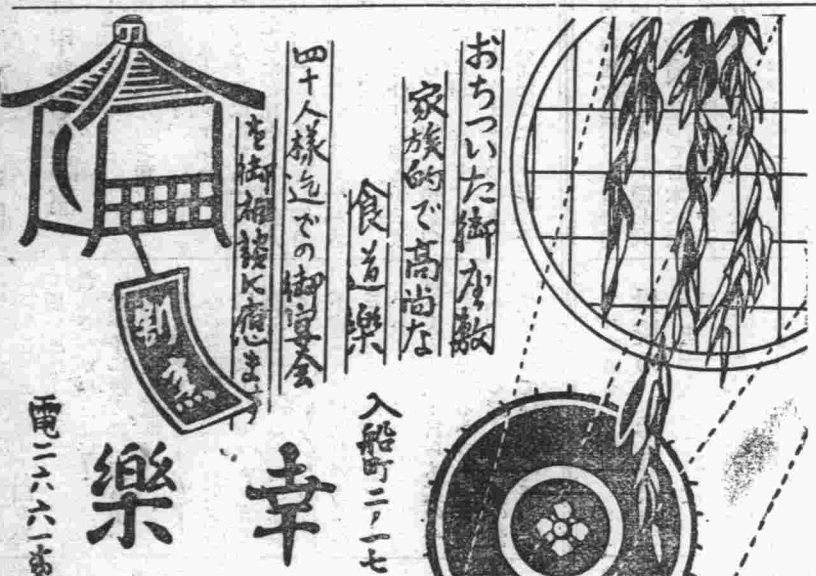 おちついた御座敷
家族的で高尚な
食道樂
四十人樣迄での御宴会
を御相談に應ます
割烹
入船町二ノ一七
幸樂
電二六六一番